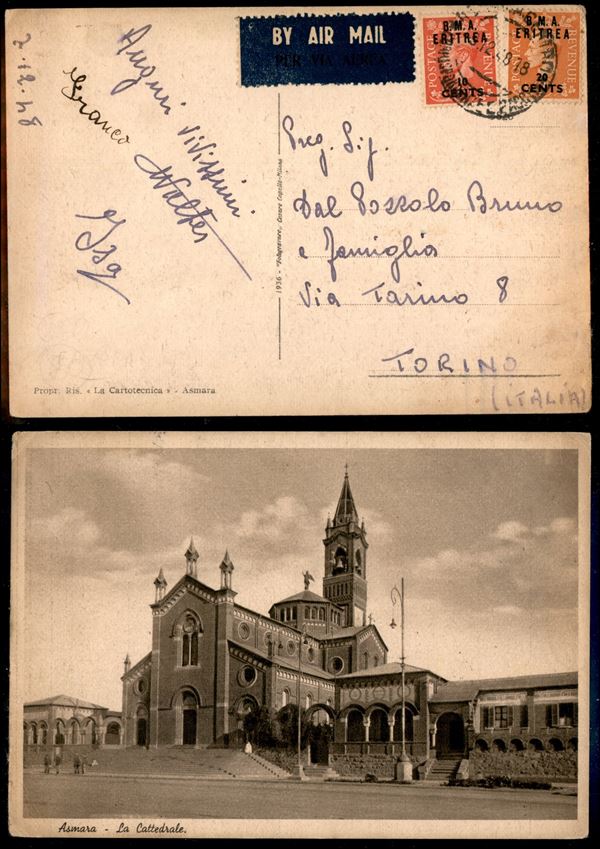 2.12.48
BY AIR MAIL
PER VIA AEREA
B.M.A.
ERITREA
10
CENTS
POSTAGE
REVENUE
B.M.A.
ERITREA
20
CENTS
REVENUE
Auguri vivissimi
Franco
Walter
Isa
Preg. Sig.
Dal Pozzolo Bruno
e famiglia
Via Tarino 8
TORINO
(ITALIA)
Propr. Ris. « La Cartotecnica » - Asmara
Asmara - La Cattedrale.